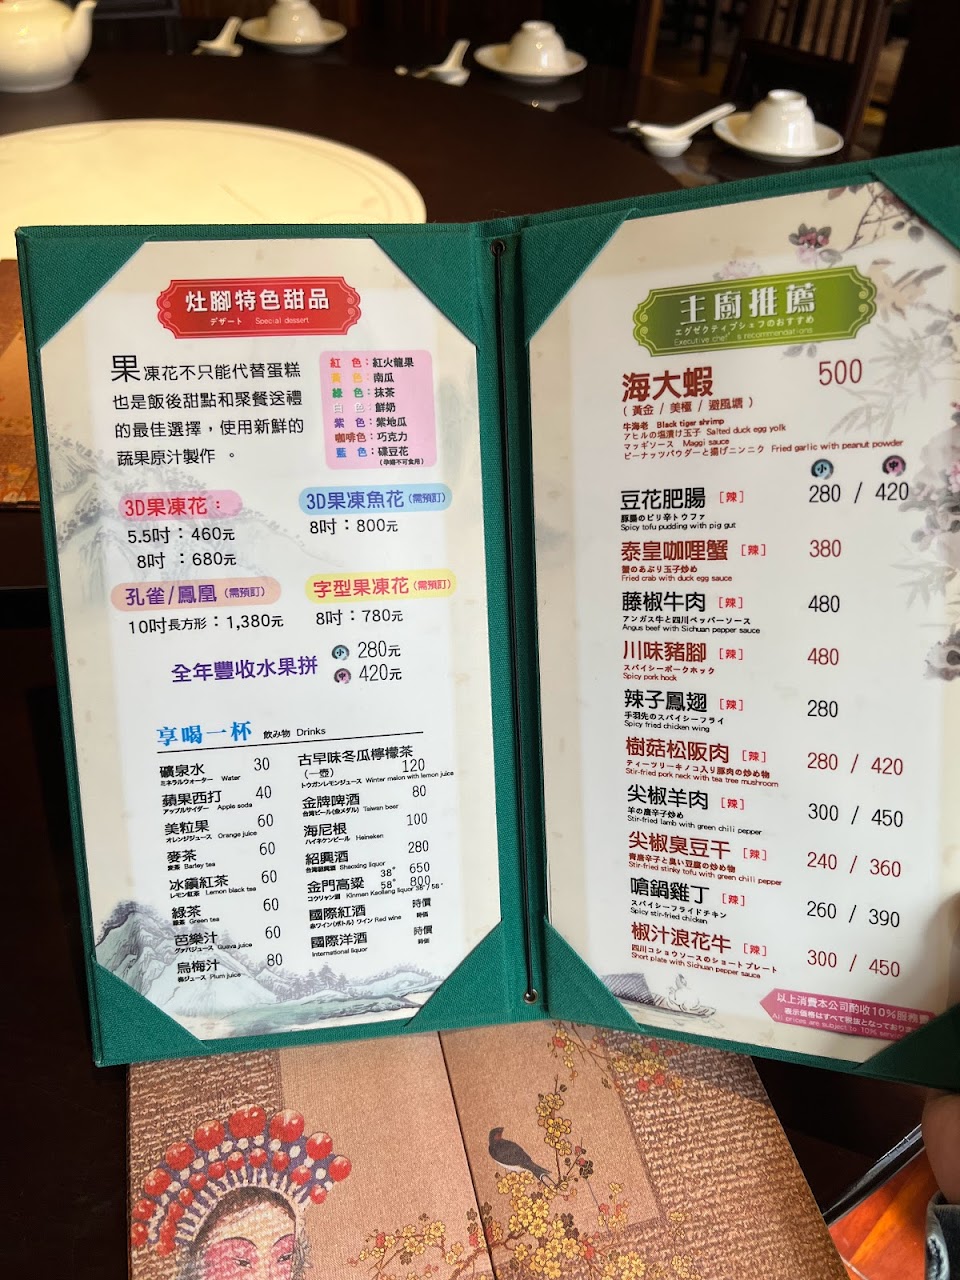 灶腳特色甜品
デザート Special dessert
果凍花不只能代替蛋糕
也是飯後甜點和聚餐送禮
的最佳選擇，使用新鮮的
蔬果原汁製作 。
紅 色：紅火龍果
黃 色：南瓜
綠 色：抹茶
白 色：鮮奶
紫 色：紫地瓜
咖啡色：巧克力
藍 色：碟豆花
(孕婦不可食用)
3D果凍花：
5.5吋：460元
8吋 ：680元
3D果凍魚花(需預訂)
8吋：800元
孔雀/鳳凰 (需預訂)
10吋長方形：1,380元
字型果凍花(需預訂)
8吋：780元
全年豐收水果拼
小 280元
中 420元
享喝一杯 飲み物 Drinks
礦泉水 30
ミネラルウォーター Water
蘋果西打 40
アップルサイダー Apple soda
美粒果 60
オレンジジュース Orange juice
麥茶 60
麦茶 Barley tea
冰鎮紅茶 60
レモン紅茶 Lemon black tea
綠茶 60
緑茶 Green tea
芭樂汁 60
グァバジュース Guava juice
烏梅汁 80
梅ジュース Plum juice
古早味冬瓜檸檬茶
(一壺) 120
トウガンレモンジュース Winter melon with lemon juice
金牌啤酒 80
台湾ビール(金メダル) Taiwan beer
海尼根 100
ハイネケンビール Heineken
紹興酒 280
台湾紹興酒 Shaoxing liquor
38° 650
金門高粱 58° 800
コウリャン酒 Kinman Kaoliang liquor 38°/ 58°
國際紅酒 時價
赤ワイン(ボトル) ワイン Red wine 時価
國際洋酒 時價
International liquor 時価
主廚推薦
エグゼクティブシェフのおすすめ
Executive chef's recommendations
海大蝦 500
( 黃金 / 美極 / 避風塘 )
牛海老 Black tiger shrimp
アヒルの塩漬け玉子 Salted duck egg yolk
マッギソース Maggi sauce
ピーナッツパウダーと揚げニンニク Fried garlic with peanut powder
小 中
豆花肥腸 [辣] 280 / 420
豚腸のピリ辛トウファ
Spicy tofu pudding with pig gut
泰皇咖哩蟹 [辣] 380
蟹のあぶり玉子炒め
Fried crab with duck egg sauce
藤椒牛肉 [辣] 480
アンガス牛と四川ペッパーソース
Angus beef with Sichuan pepper sauce
川味豬腳 [辣] 480
スパイシーポークホック
Spicy pork hock
辣子鳳翅 [辣] 280
手羽先のスパイシーフライ
Spicy fried chicken wing
樹菇松阪肉 [辣] 280 / 420
ティーツリーキノコ入り豚肉の炒め物
Stir-fried pork neck with tea tree mushroom
尖椒羊肉 [辣] 300 / 450
羊の唐辛子炒め
Stir-fried lamb with green chili pepper
尖椒臭豆干 [辣] 240 / 360
青唐辛子と臭い豆腐の炒め物
Stir-fried stinky tofu with green chili pepper
嗆鍋雞丁 [辣] 260 / 390
スパイシーフライドチキン
Spicy stir-fried chicken
椒汁浪花牛 [辣] 300 / 450
四川コショウソースのショートプレート
Short plate with Sichuan pepper sauce
以上消費本公司酌收10%服務費
表示価格はすべて税抜となっております
All prices are subject to 10%